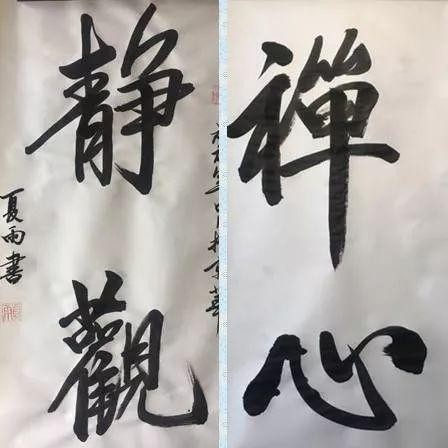 禪心
靜觀
夏雨書